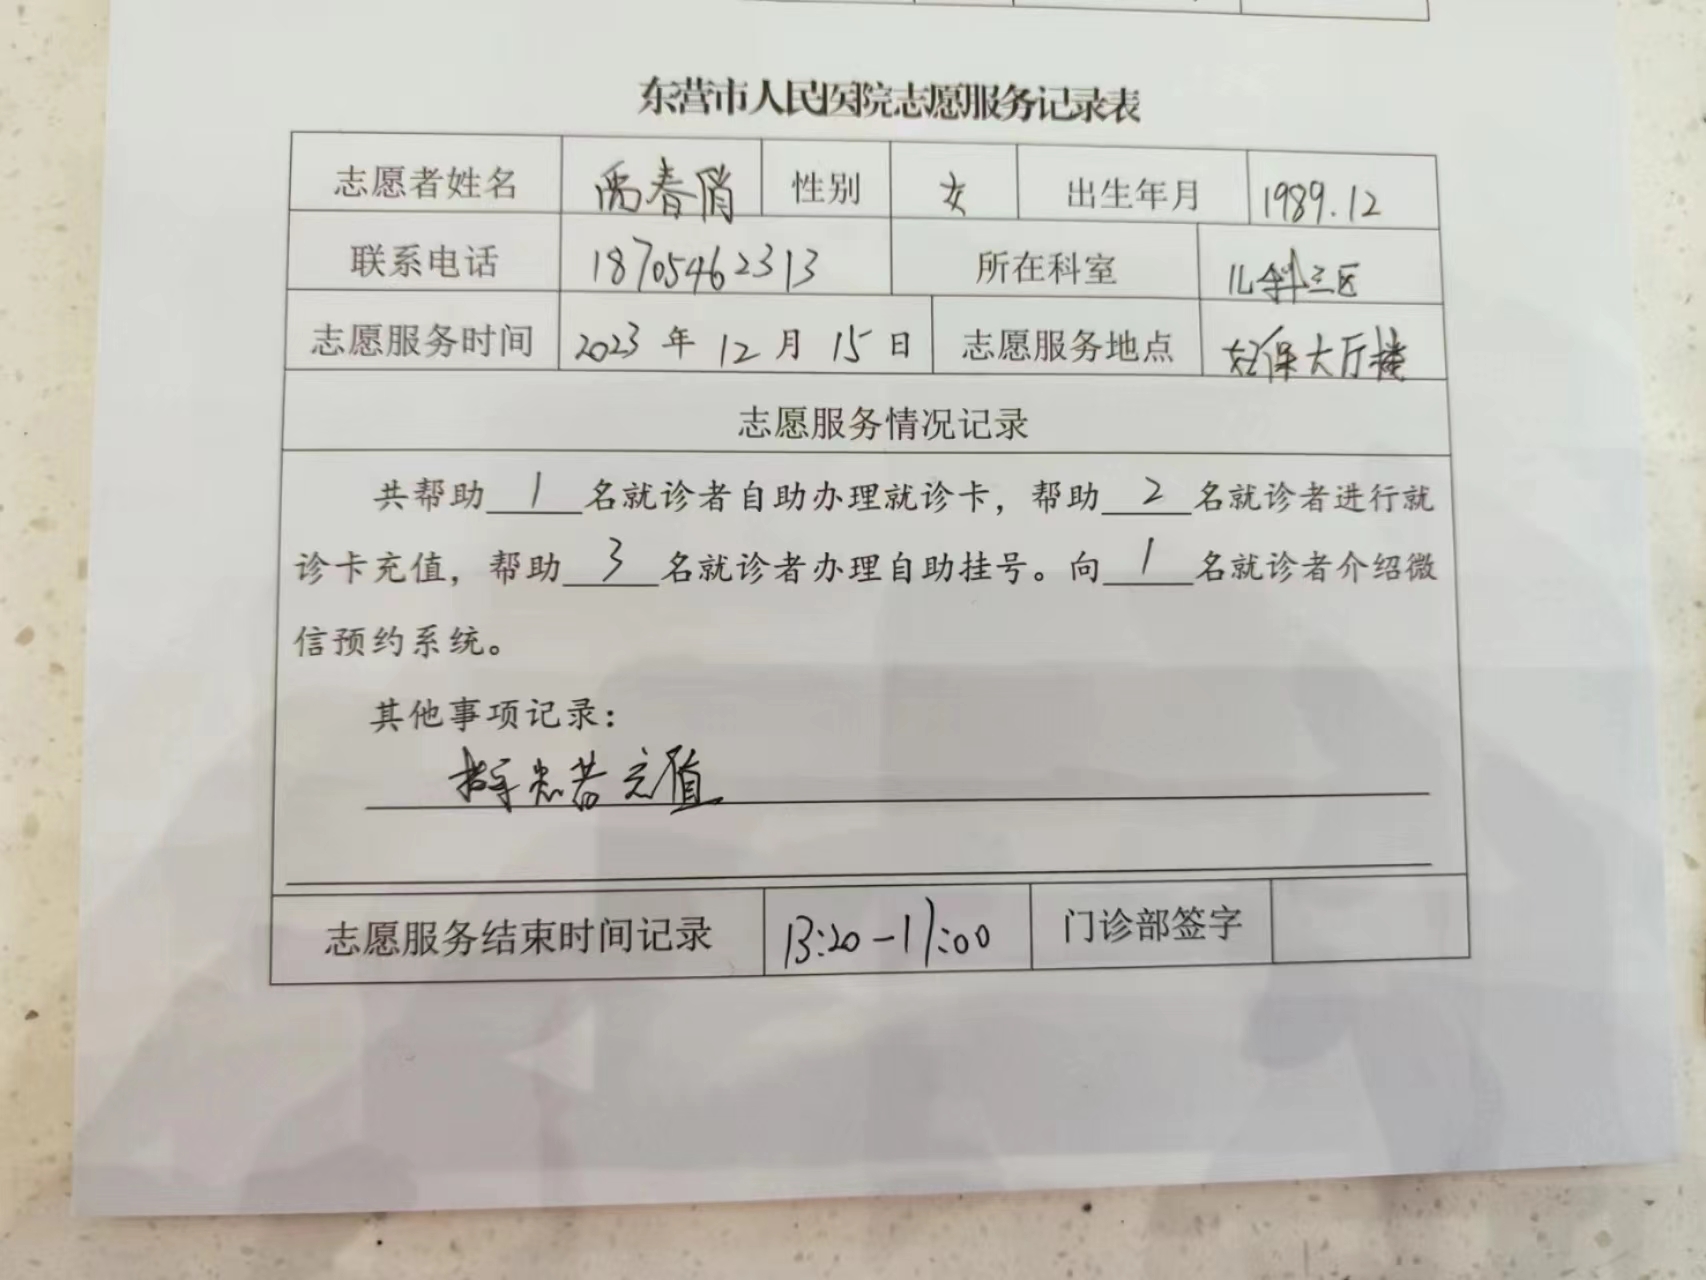 东营市人民医院志愿服务记录表
志愿者姓名 春俏 性别 女 出生年月 1989.12
联系电话 18705462313 所在科室 儿科三区
志愿服务时间 2023年12月15日 志愿服务地点 社保大厅楼
志愿服务情况记录
共帮助1名就诊者自助办理就诊卡，帮助2名就诊者进行就
诊卡充值，帮助3名就诊者办理自助挂号。向1名就诊者介绍微
信预约系统。
其他事项记录：
指导患者充值
志愿服务结束时间记录 13:20-17:00 门诊部签字